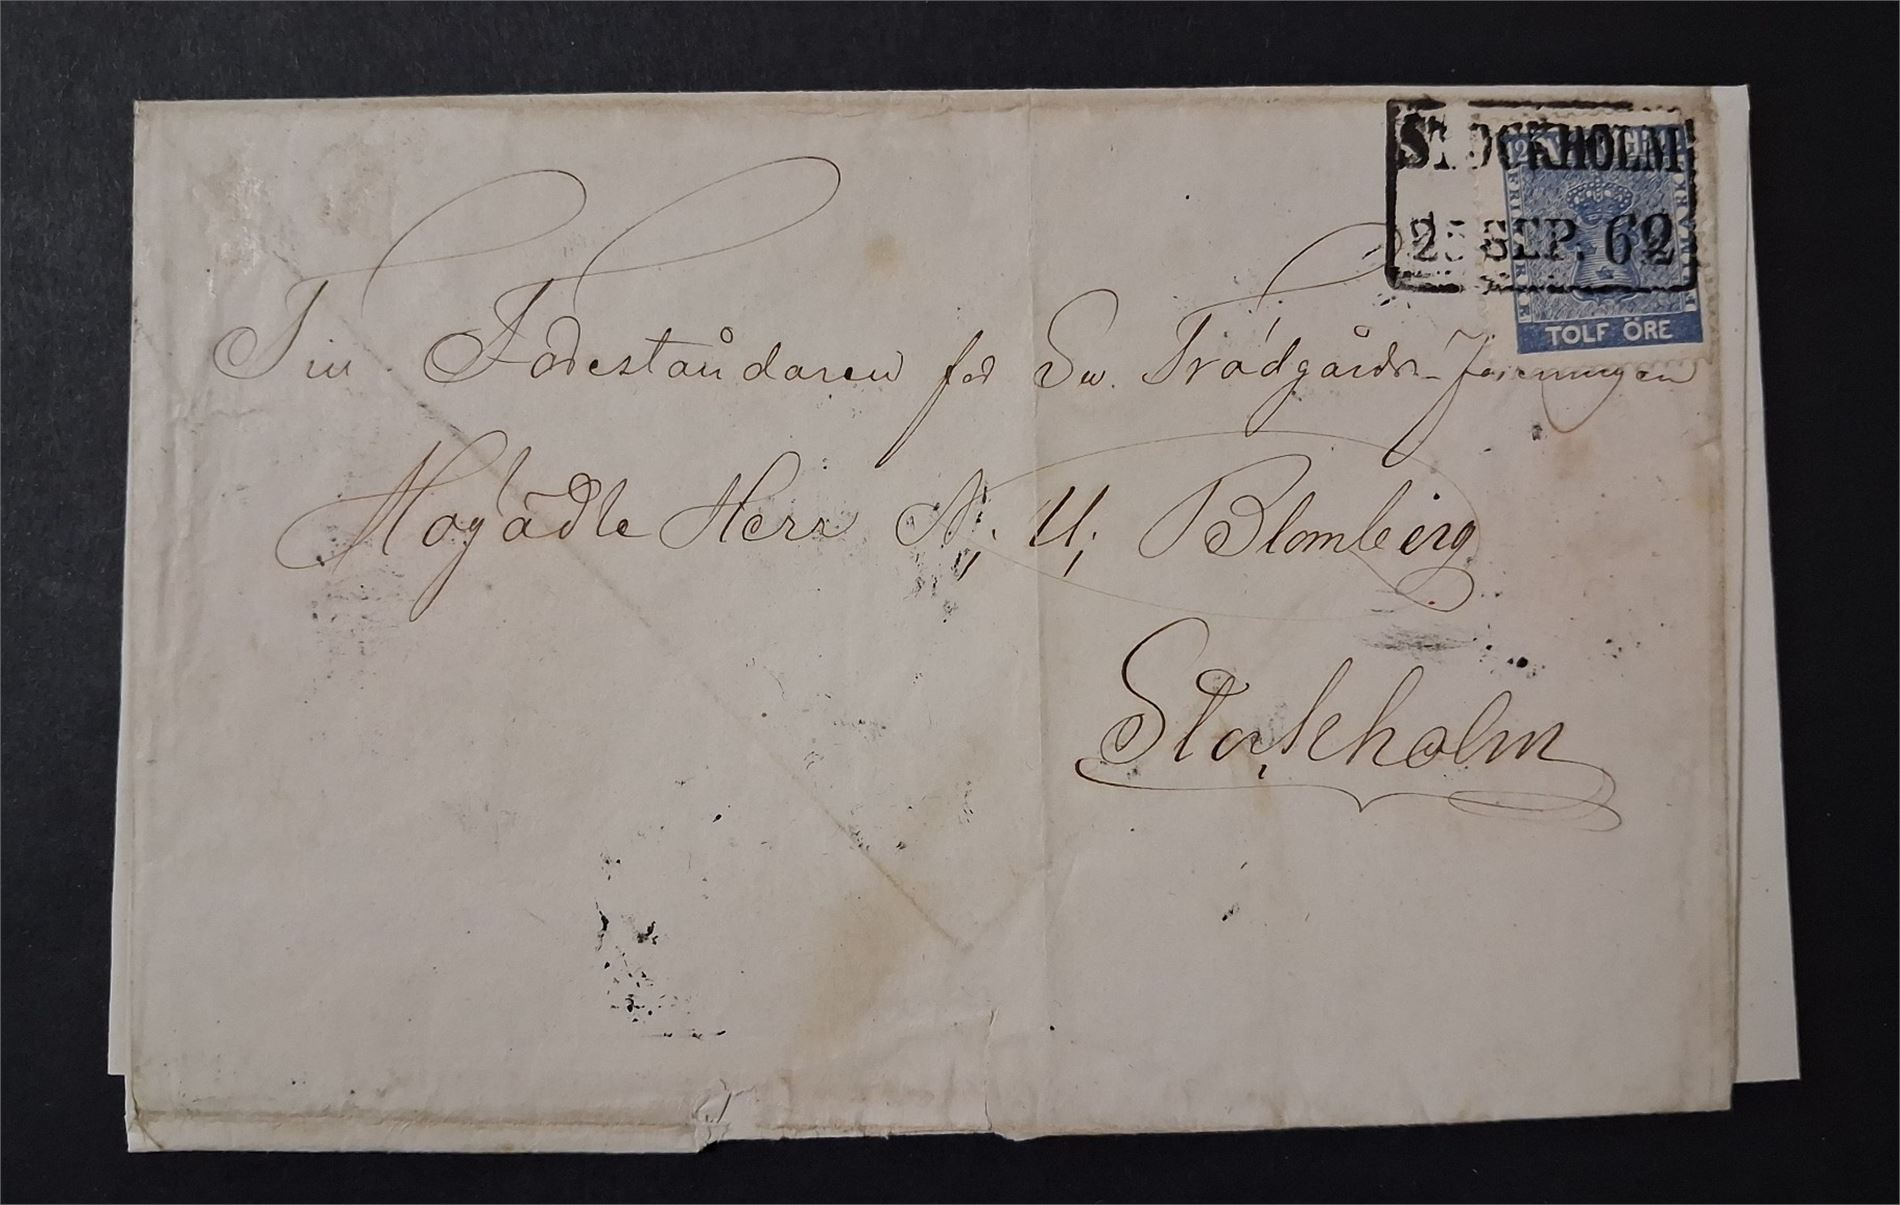 STOCKHOLM
25 SEP. 62
FRIMÄRKE
TOLF ÖRE
Till Föreståndaren för Sv. Trädgårds-Föreningen
Högädle Herr N. U. Blomberg
Stockholm